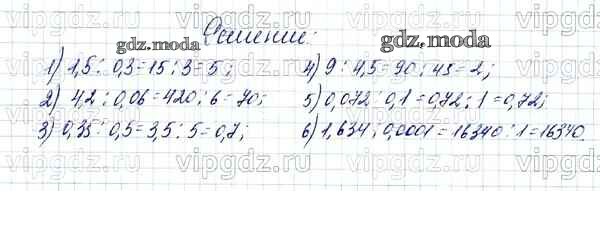 vipgdz.ru vipgdz.ru vipgdz.ru vipgdz.ru
Решение:
gdz.moda gdz.moda
1) 1,5 : 0,3 = 15 : 3 = 5; 4) 9 : 4,5 = 90 : 45 = 2;
vipgdz.ru vipgdz.ru vipgdz.ru vipgdz.ru
2) 4,2 : 0,06 = 420 : 6 = 70; 5) 0,072 : 0,1 = 0,72 : 1 = 0,72;
3) 0,35 : 0,5 = 3,5 : 5 = 0,7; 6) 1,634 : 0,0001 = 16340 : 1 = 16340.
vipgdz.ru vipgdz.ru vipgdz.ru vipgdz.ru
vipgdz.ru vipgdz.ru vipgdz.ru vipgdz.ru